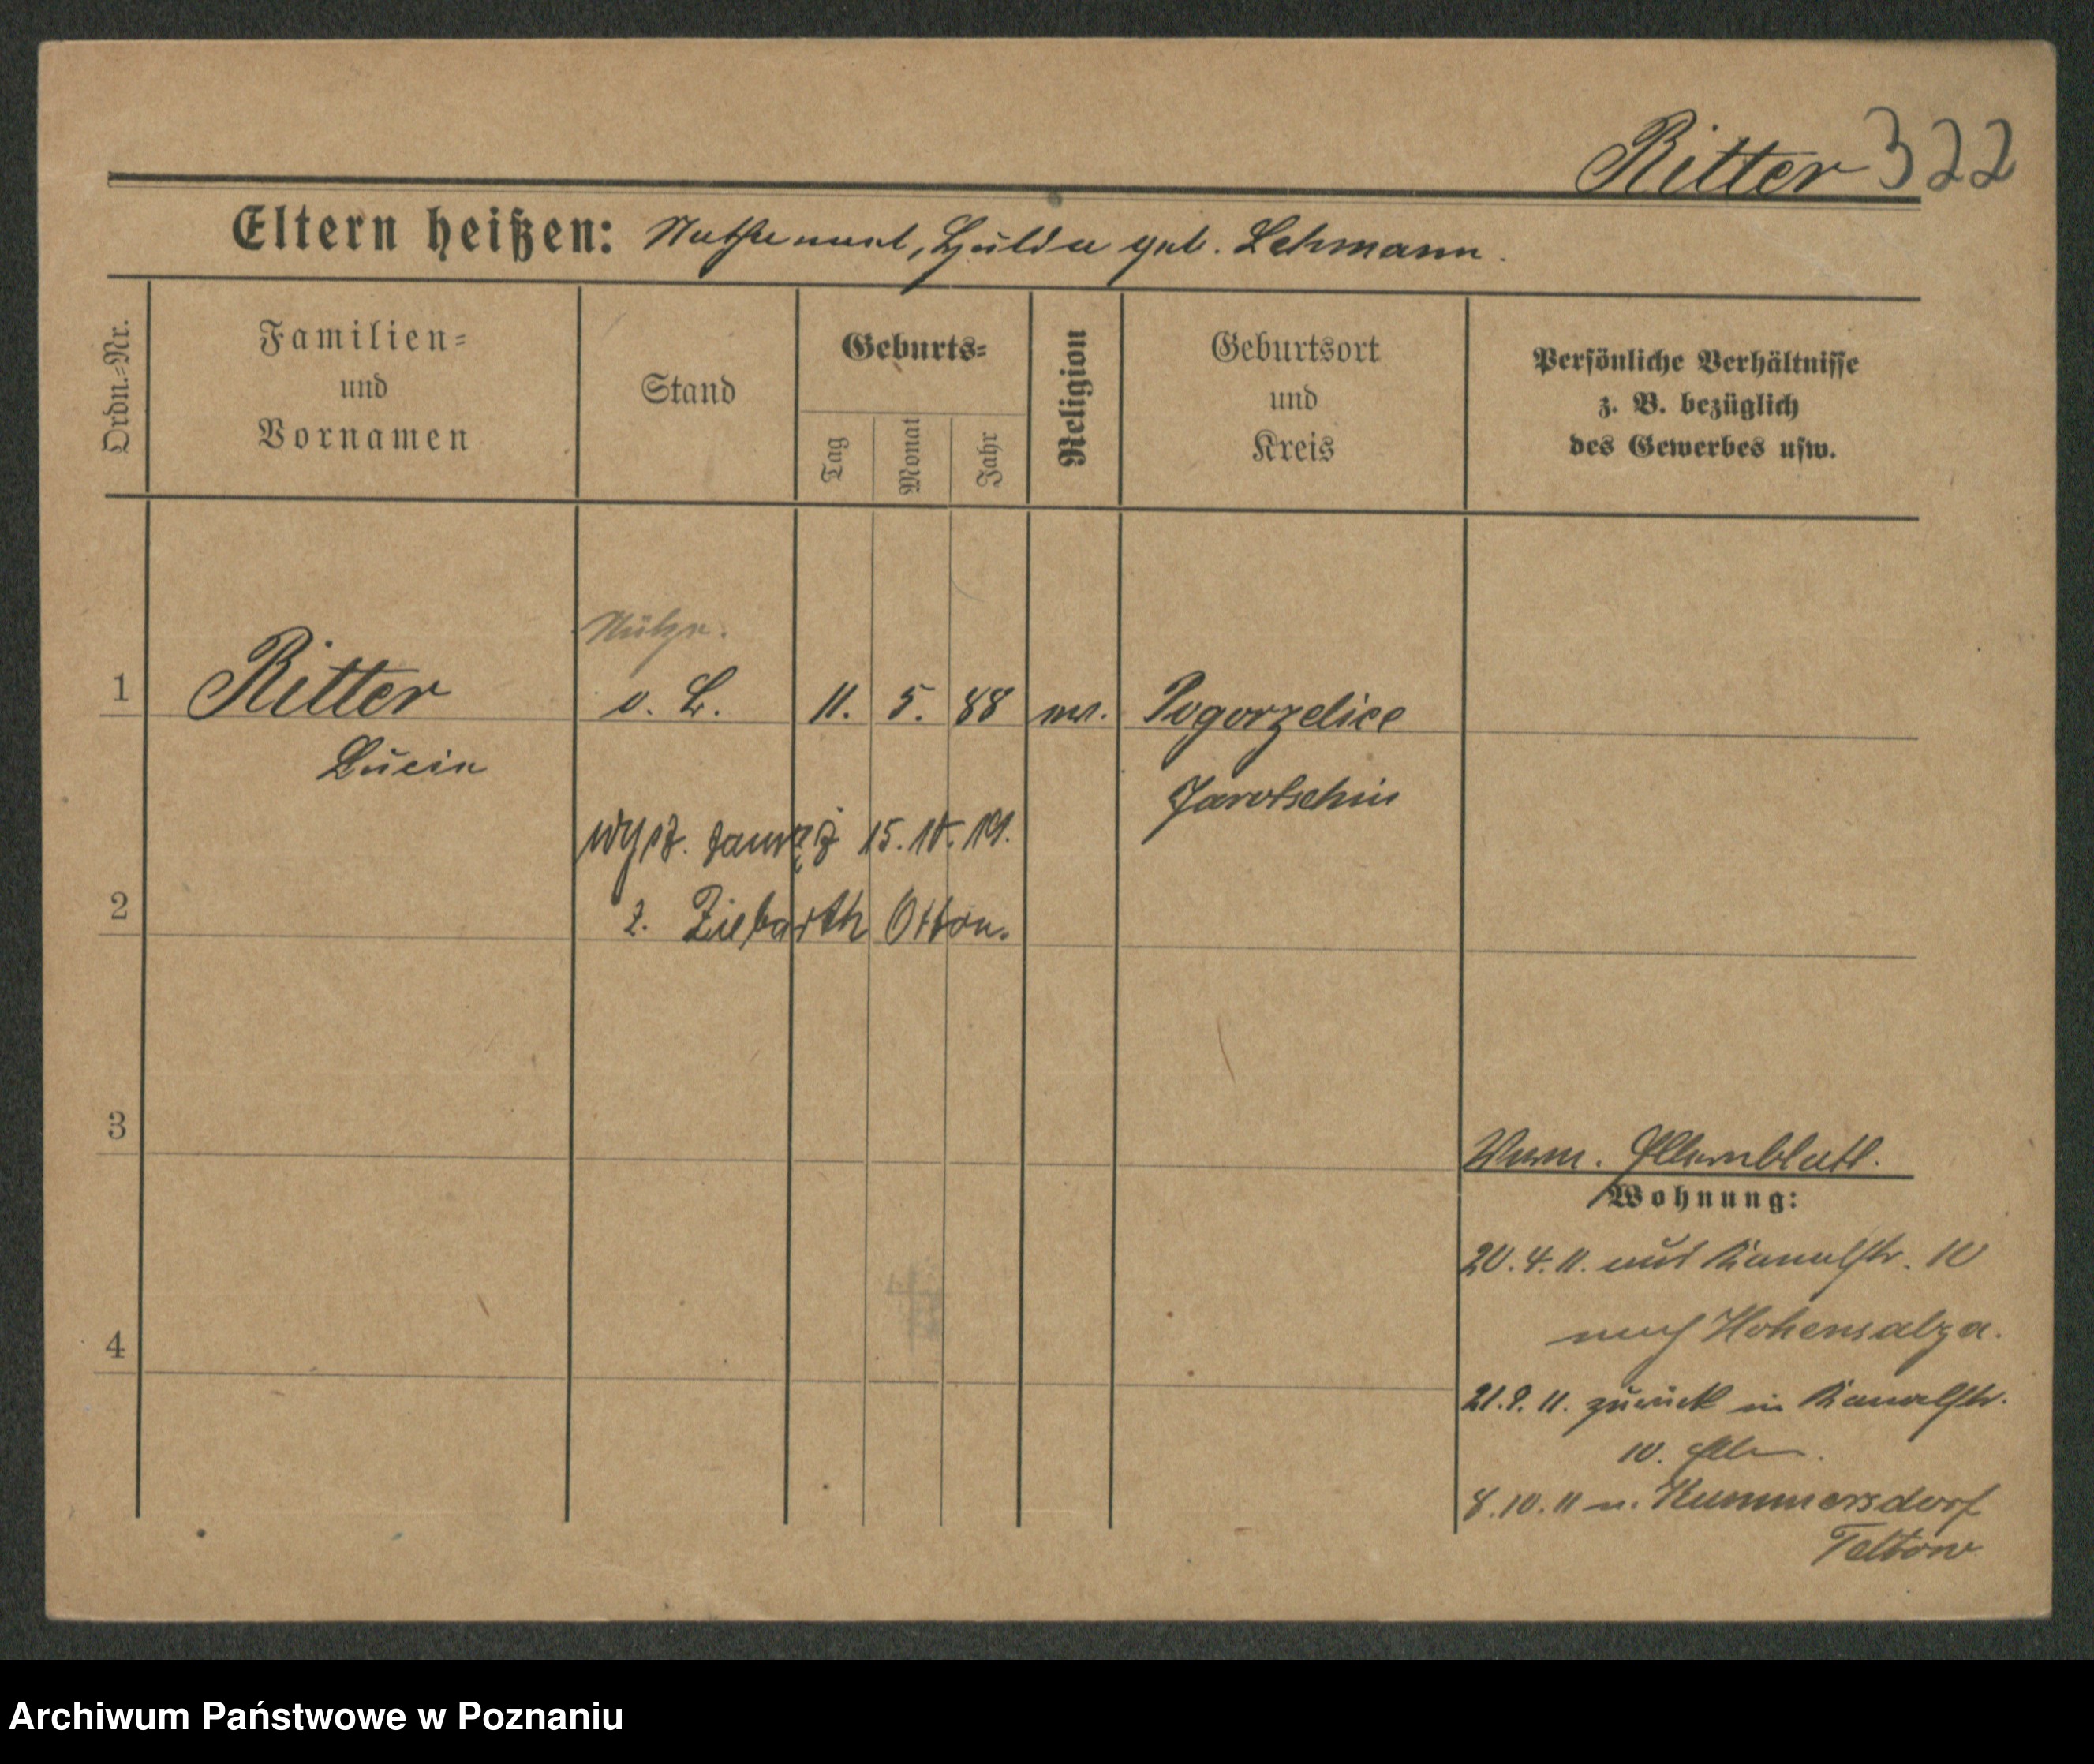 Ritter 322
Eltern heißen: Nathanael, Hulda geb. Lehmann.
Ordn.=Nr.
Familien=
und
Vornamen
Stand
Geburts=
Tag
Monat
Jahr
Religion
Geburtsort
und
Kreis
Persönliche Verhältnisse
z. B. bezüglich
des Gewerbes usw.
1 Ritter o. B. 11. 5. 88 ev. Pogorzelice
Lucie
Jarotschin
wysz. zamąż 15.10.19.
2 z. Ziebarth Otton.
3
Elternblatt.
Wohnung:
20.4.11. aus Kanalstr. 10
nach Hohensalza.
4
21.9.11. zurück in Kanalstr.
10. Elt.
8.10.11 n. Kummersdorf
Teltow
Archiwum Państwowe w Poznaniu